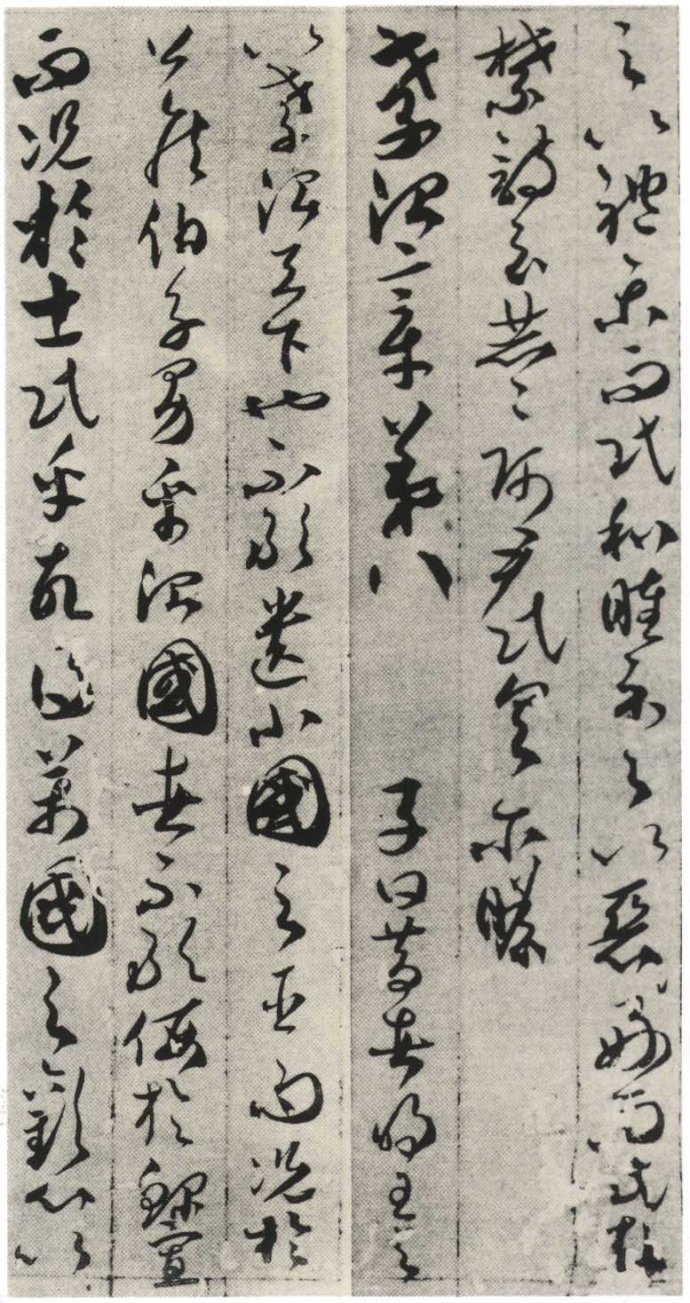 之以禮樂而民和睦示之以惡好而民知
禁詩云赫〻師尹民具尔瞻
孝治章第八 子曰昔者明王之
以孝治天下也不敢遺小國之臣而況於
公侯伯子男乎治國者不敢侮於鰥寡
而況於士民乎故得萬國之歡心以